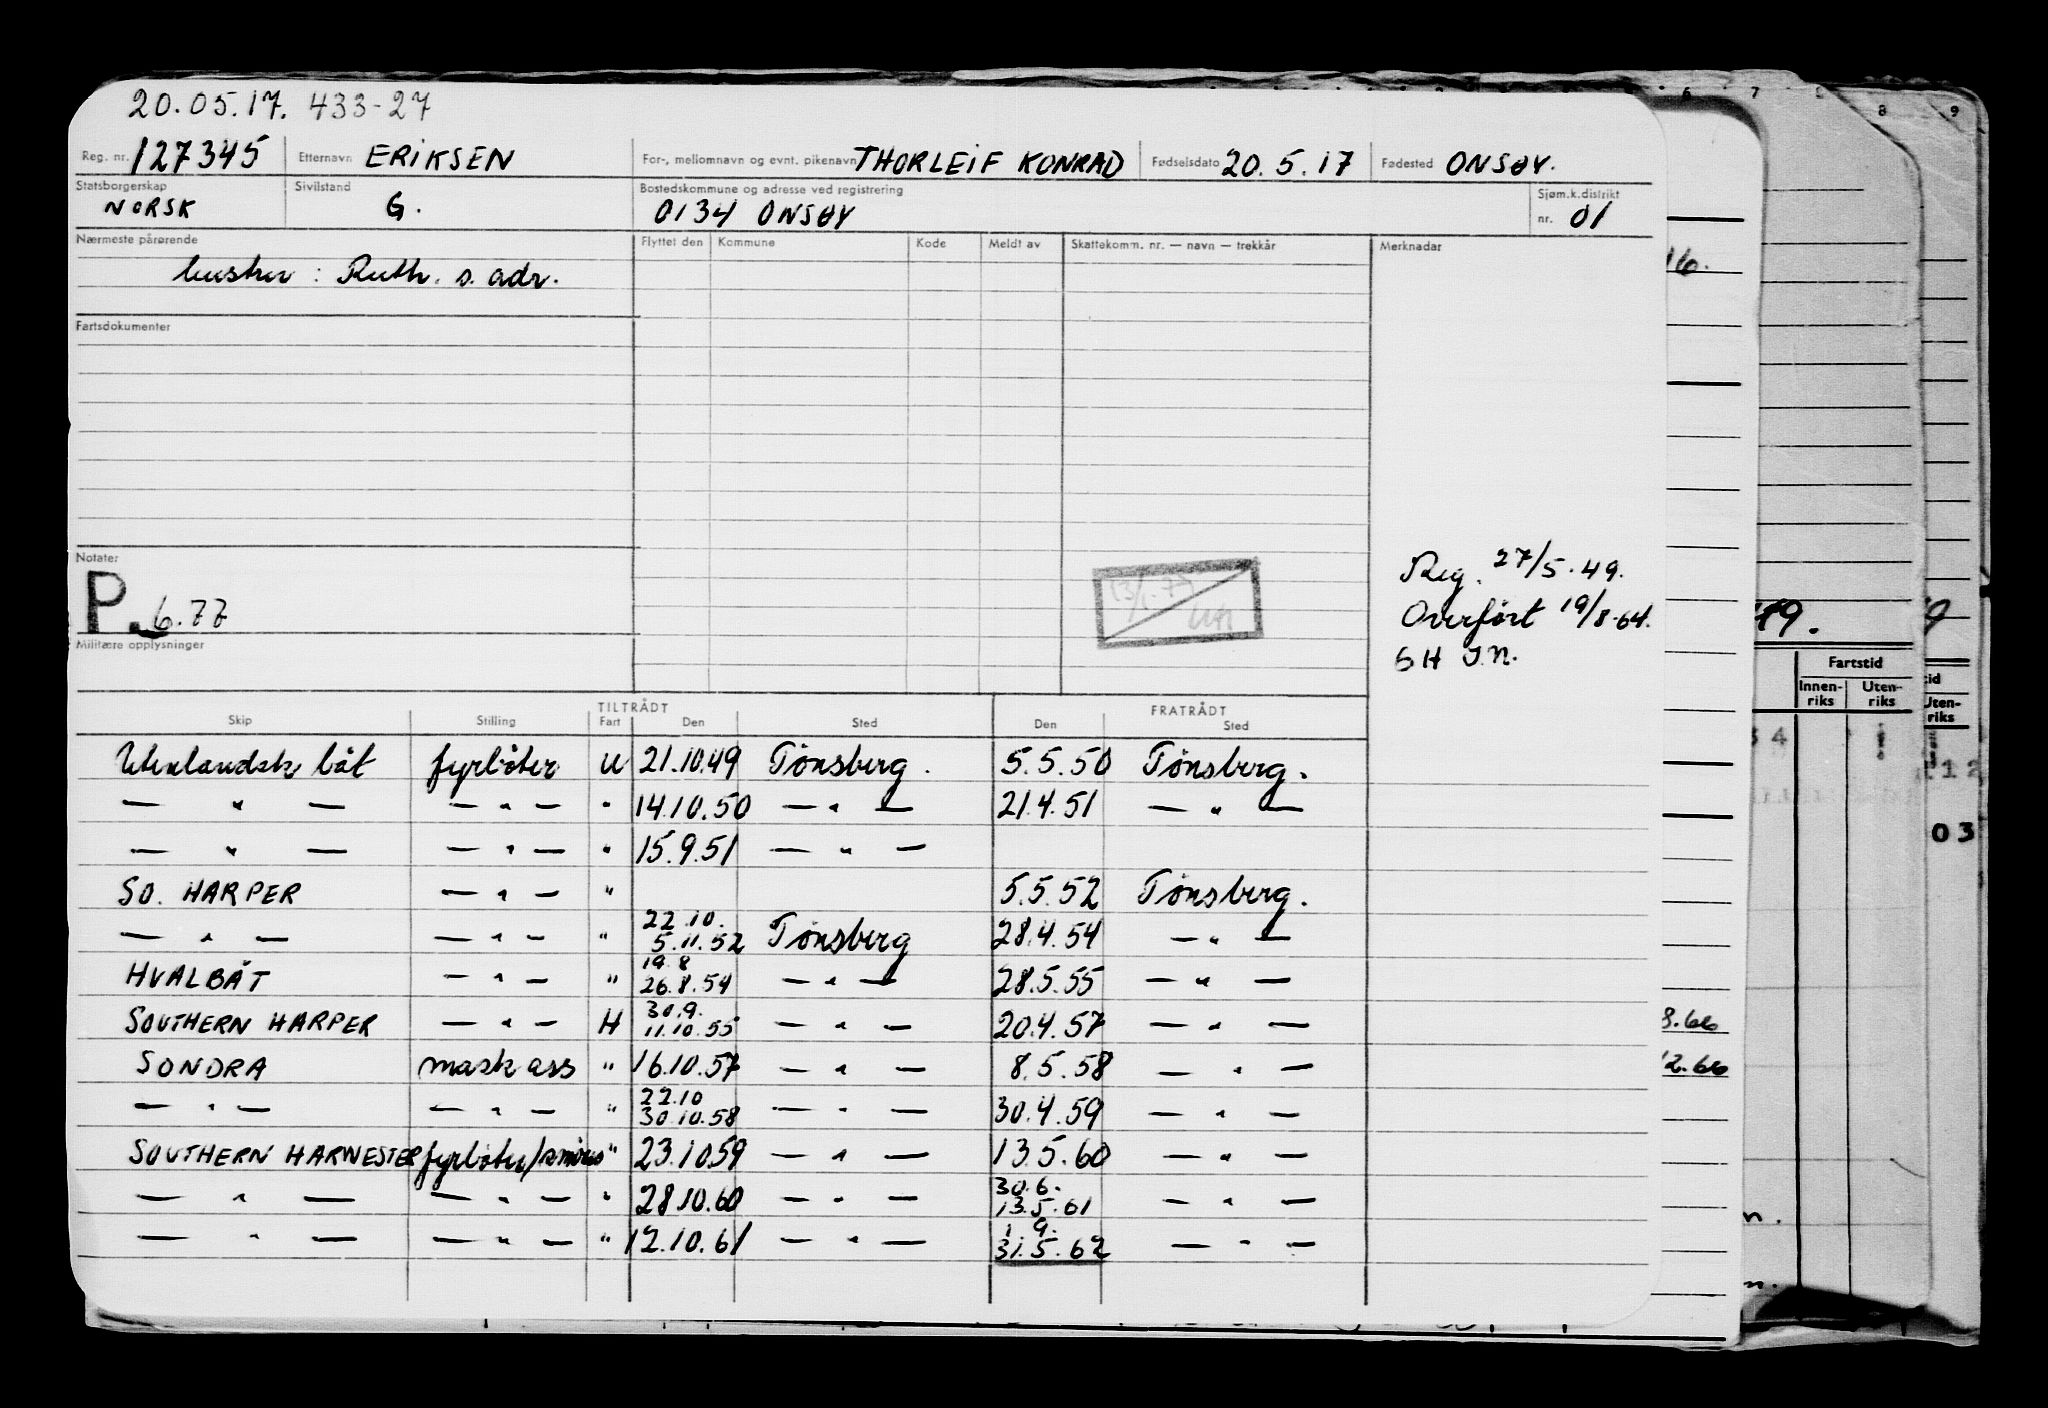 20.05.17. 433-27
Reg. nr. 127345 Etternavn ERIKSEN For-, mellomnavn og evnt. pikenavn THORLEIF KONRAD Fødselsdato 20.5.17 Fødested ONSØY.
Statsborgerskap Sivilstand Bostedskommune og adresse ved registrering Sjøm.k.distrikt
NORSK G. 0134 ONSØY nr. 01
Nærmeste pårørende Flyttet den Kommune Kode Meldt av Skattekomm. nr. — navn — trekkår Merknader
hustru : Ruth. s. adr.
Fartsdokumenter
Notater
P. 6.77
Reg. 27/5.49.
Overført 19/8-64.
Militære opplysninger
TILTRÅDT FRATRÅDT
Skip Stilling Fart Den Sted Den Sted
Utenlandsk båt fyrbøter U 21.10.49 Tønsberg. 5.5.50 Tønsberg.
— " — — " — " 14.10.50 — " — 21.4.51 — " —
— " — — " — " 15.9.51 — " —
SO. HARPER — " — " 5.5.52 Tønsberg.
— " — — " — " 22.10. 5.11.52 Tønsberg 28.4.54 — " —
HVALBÅT — " — " 19.8 26.8.54 — " — 28.5.55 — " —
SOUTHERN HARPER — " — H 30.9. 11.10.55 — " — 20.4.57 — " —
SONDRA mask ass " 16.10.57 — " — 8.5.58 — " —
— " — — " — " 22.10 30.10.58 — " — 30.4.59 — " —
SOUTHERN HARWESTER fyrbøter/ " 23.10.59 — " — 13.5.60 — " —
— " — — " — " 28.10.60 — " — 30.6. 13.5.61 — " —
— " — — " — " 12.10.61 — " — 1.9. 31.5.62 — " —
6 7 8 8 9
16.
49.
Fartstid
Innen-riks Uten-riks
Uten-riks
34
.12
03
8.66
12.66